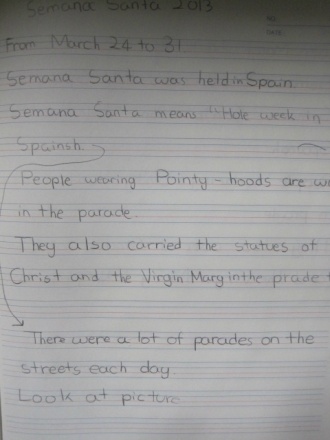 Semana Santa 2013
From March 24 to 31.
Semana Santa was held in Spain.
Semana Santa means "Hole week in
Spainsh
People wearing Pointy-hoods are
in the parade.
They also carried the statues of
Christ and the Virgin Mary in the prade
There were a lot of parades on the
streets each day.
Look at picture